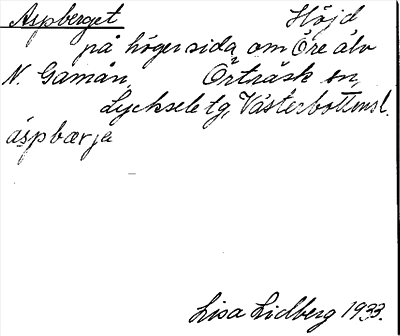 Aspberget Höjd
på höger sida om Öre älv
N. Gamån, Örträsk sn,
Lycksele tg, Västerbottensl.
áspbærja
Lisa Lidberg 1933.